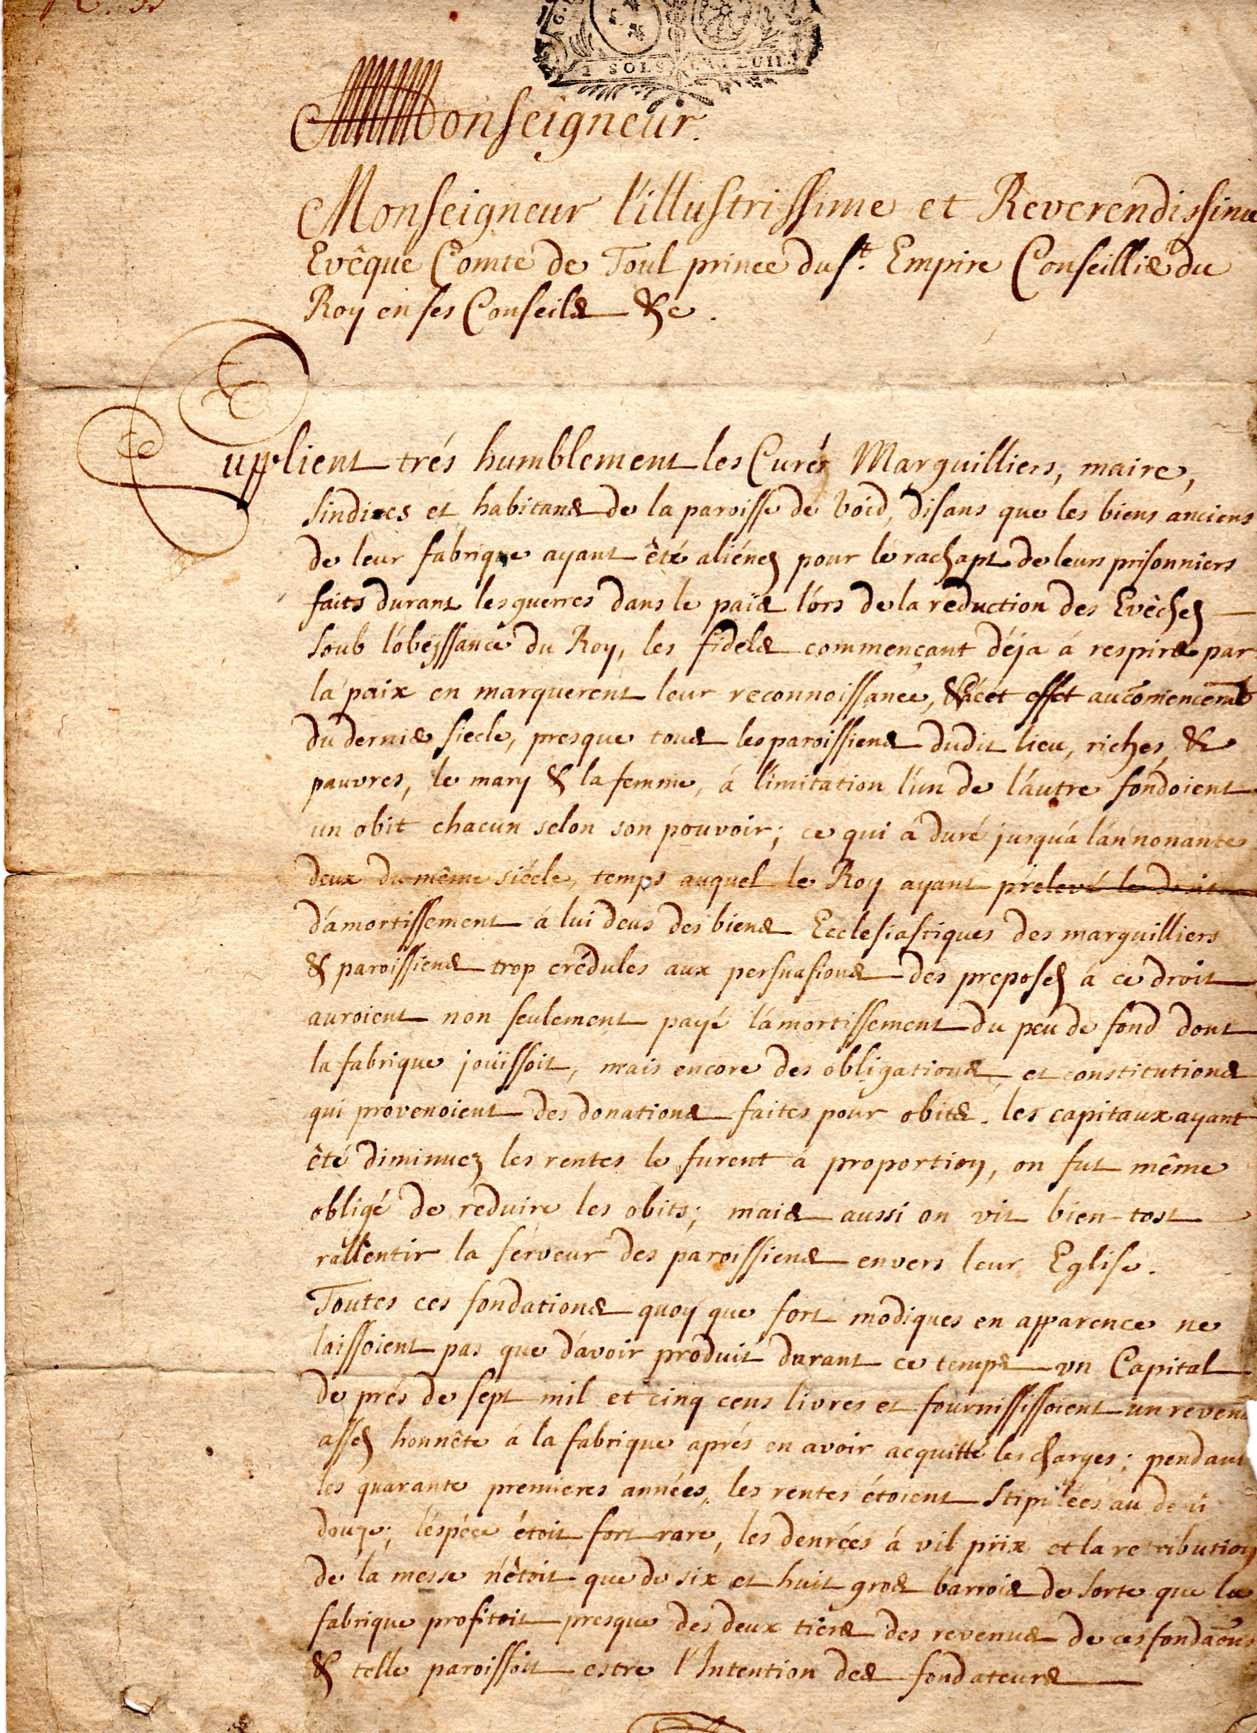 2 SOLS LA FEUIL.
Monseigneur.
Monseigneur l'illustrissime et Reverendissime
Evêque Comte de Toul prince du St. Empire Conseillier du
Roy en ses Conseils &c.
Supplient trés humblement les Curés Marguilliers, maire,
sindics et habitans de la paroisse de Void, disans que les biens anciens
de leur fabrique ayant êté aliénez pour le rachapt de leurs prisonniers
faits durant les guerres dans le païs lors de la reduction des Evêchez
soub l'obeÿssance du Roy, les fideles commençant déja á respirer par
la paix en marquerent leur reconnoissance, & á cet effet au comencemt
du dernier siecle, presque tous les paroissiens dudit lieu, riches, &
pauvres, le mary & la femme, á l'imitation l'un de l'autre fondoient
un obit chacun selon son pouvoir; ce qui á duré jusqu'a l'an nonante
deux du même siécle, temps auquel le Roy ayant prelevé le droit
d'amortissement á lui deus des biens Ecclesiastiques des marguilliers
& paroissiens trop crédules aux persuasions des preposez á ce droit
auroient non seulement payé l'amortissement du peu de fond dont
la fabrique joüissoit, mais encore des obligations, et constitutions
qui provenoient des donations faites pour obits. les capitaux ayant
êté diminuez les rentes le furent á proportion, on fut même
obligé de reduire les obits; mais aussi on vit bien-tost
rallentir la ferveur des paroissiens envers leur Eglise.
Toutes ces fondations quoy que fort modiques en apparence ne
laissoient pas que d'avoir produit durant ce temps un Capital
de prés de sept mil et cinq cens livres et fournississoient un revenu
assez honnête á la fabrique aprés en avoir acquitté les charges; pendant
les quarante premieres années, les rentes étoient stipulées au
douze; l'espéce étoit fort rare, les denrées á vil prix et la retribution
de la messe n'êtoit que de six et huit gros barrois de sorte que la
fabrique profitoit presque des deux tiers des revenus de ces fondaons
& telle paroissoit estre l'Intention des fondateurs